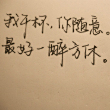 我干杯，你随意。
最好一醉方休。